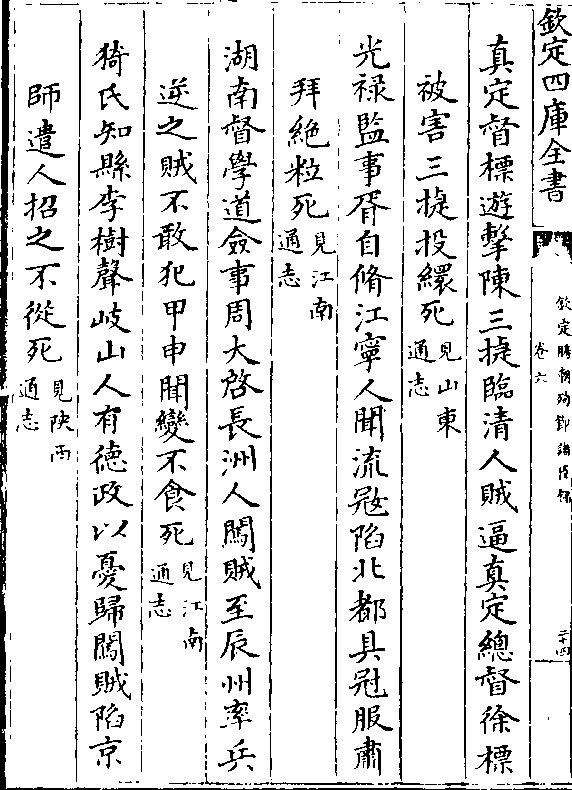 欽定四庫全書
欽定勝朝殉節諸臣錄
卷六
二十四
真定督標遊擊陳三㨗臨清人賊逼真定總督徐標
被害三㨗投繯死見山東通志
光禄監事胥自脩江寧人聞流冦陷北都具冠服肅
拜絶粒死見江南通志
湖南督學道僉事周大啓長洲人闖賊至辰州率兵
逆之賊不敢犯甲申聞變不食死見江南通志
猗氏知縣李樹聲岐山人有德政以憂歸闖賊陷京
師遣人招之不從死見陜西通志